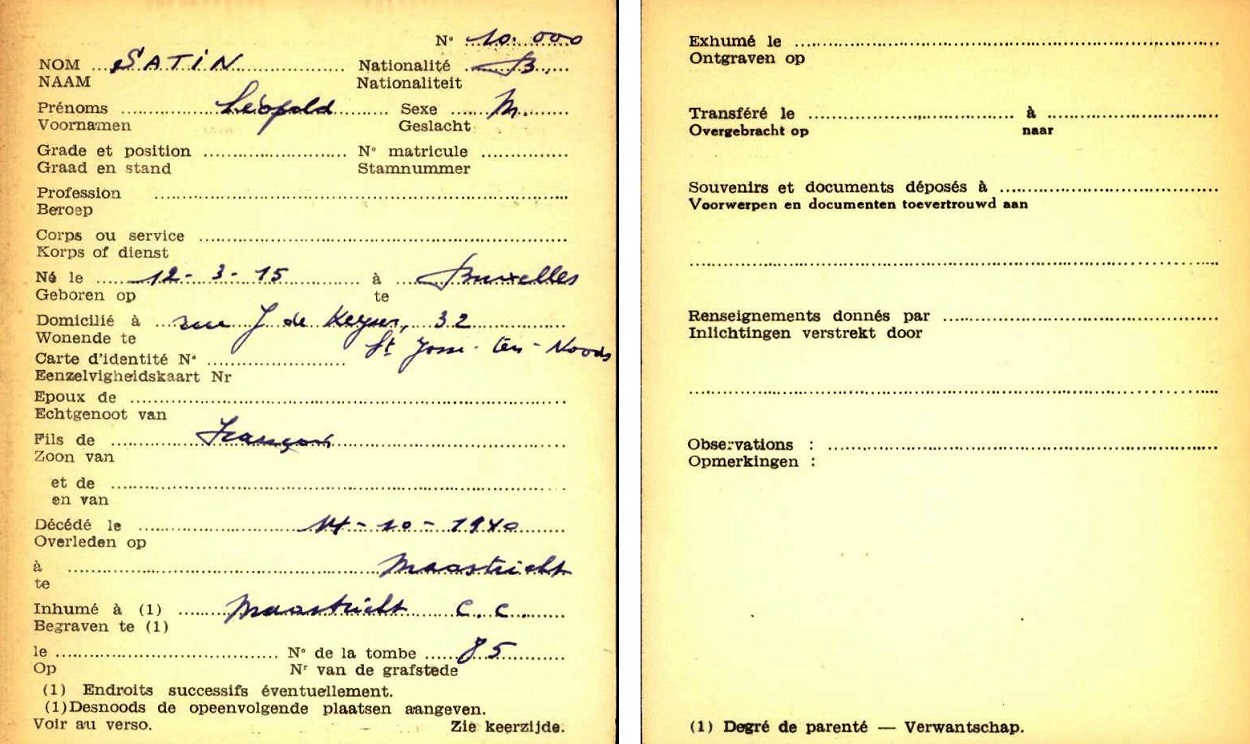 N° 10.000
NOM SATIN Nationalité B.
NAAM Nationaliteit
Prénoms Léopold Sexe M.
Voornamen Geslacht
Grade et position N° matricule
Graad en stand Stamnummer
Profession
Beroep
Corps ou service
Korps of dienst
Né le 12-3-15 à Bruxelles
Geboren op te
Domicilié à rue J de Keyser, 32
Wonende te St Josse-ten-Noode
Carte d'identité N°
Eenzelvigheidskaart Nr
Epoux de
Echtgenoot van
Fils de François
Zoon van
et de
en van
Décédé le 14-10-1940
Overleden op
à Maastricht
te
Inhumé à (1) Maastricht C.C.
Begraven te (1)
le N° de la tombe 85
Op Nr van de grafstede
(1) Endroits successifs éventuellement.
(1)Desnoods de opeenvolgende plaatsen aangeven.
Voir au verso. Zie keerzijde.
Exhumé le
Ontgraven op
Transféré le à
Overgebracht op naar
Souvenirs et documents déposés à
Voorwerpen en documenten toevertrouwd aan
Renseignements donnés par
Inlichtingen verstrekt door
Observations :
Opmerkingen :
(1) Degré de parenté — Verwantschap.